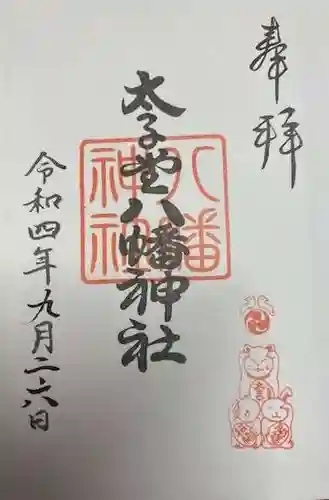 奉拝
太子堂八幡神社
八幡
神社
令和四年九月二十八日